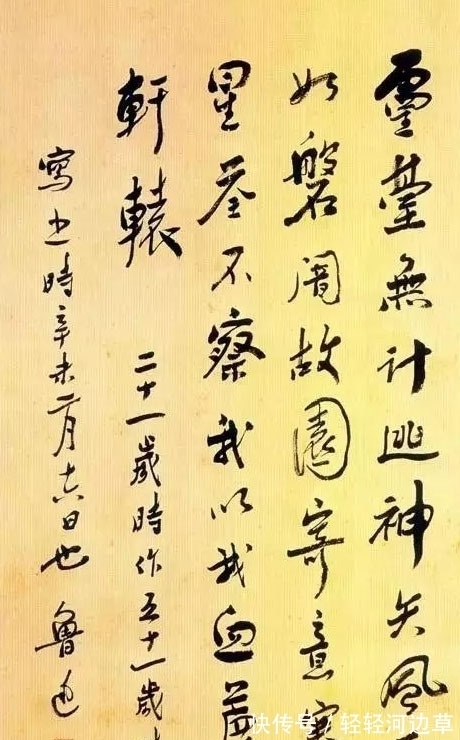 靈臺無計逃神矢風
如磐闇故園寄意寒
星荃不察我以我血薦
軒轅 二十一歲時作五十一歲
寫之時辛未二月十六日也 魯迅
快传号/轻轻河边草